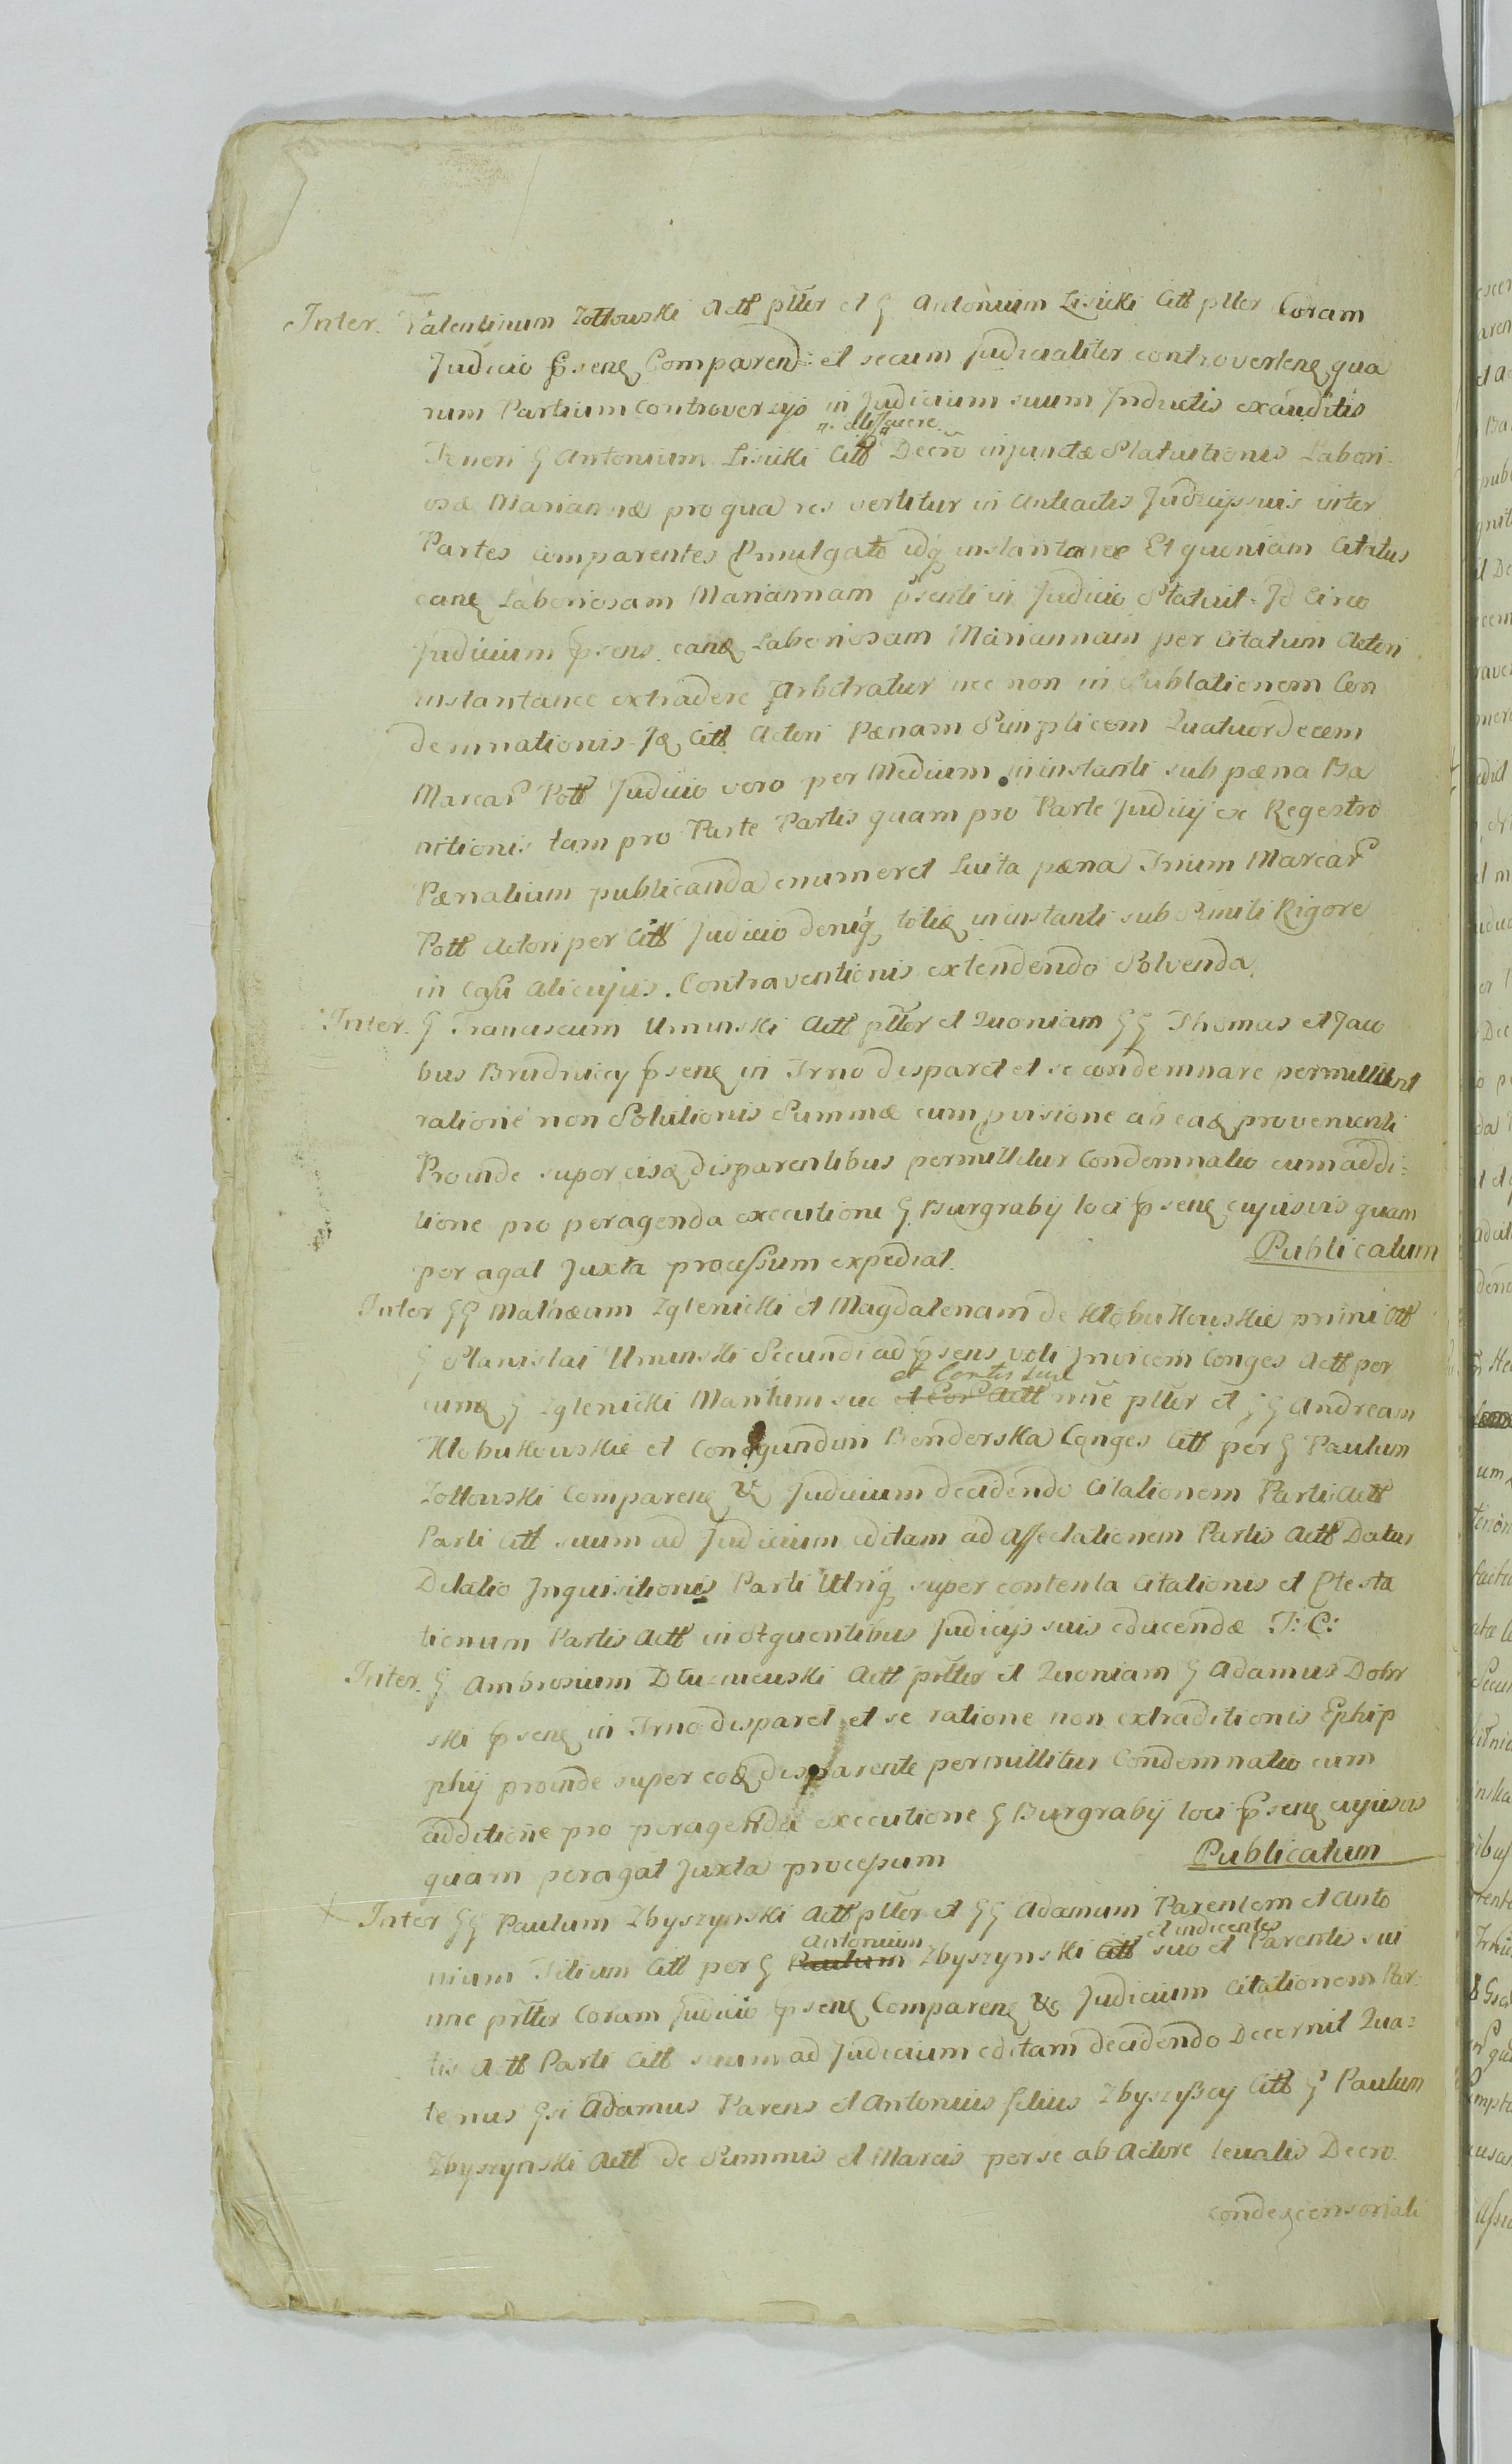 Inter. Valentinum Zottowski Actt ptter et G Antonium Lisicki Citt ptter Coram
Judicio Psenq Comparend: et secum Judicialiter controvertenq qua
rum Partium Controversijs in Judicium suum Inductis exauditis
Teneri G Antonium Lisicki Citt Decro injunctæ Statuitionis Labori-
osæ Mariannæ pro qua res vertitur in Anteactis Judicijs suis inter
Partes Comparentes Pmulgato idq instantanee Et quoniam Citatus
eanq Laboriosam Mariannam psenti in Judicio Statuit. Id Circo
Judicium Psens eanq Laboriosam Mariannam per Citatum Actori
instantanee extradere Arbitratur nec non in Sublationem Con
demnationis Citt Actori Pænam Simplicem Quatuordecem
Marcar Poll Judicio vero per Medium in instanti sub pæna Ba
nitionis tam pro Parte Partis quam pro Parte Judicij ex Regestro
Pænalium publicanda enumeret Luita pæna Trium Marcar
Poll Actori per Citt Judicio deniq totiq in instanti sub Simili Rigore
in Casu alicujus Contraventionis extendendo Solvenda.
Inter. G Franciscum Uminski Actt ptter et Quoniam GG Thomas et Jaco
bus Brudniccy Psenq in Trno disparet et se condemnare permittunt
ratione non Solutionis Summæ cum pvisione ab eaq provenienti
Proinde super eisq disparentibus permittitur Condemnatio cum addi:
tione pro peragenda executione G Burgrabij loci Psenq cujusvis quam
peragat Juxta processum expediat. Publicatum
Inter GG Mathæum Zglenicki et Magdalenam de Kłobukowskie primi olt
G Stanislai Uminski Secundi ad Psens voti Invicem Conges Actt per
et Contis suæ
eunq G Zglenicki Maritum suo et Cor Actt nne ptter et GG Andream
Kłobukowskie et Conegundim Benderska Conges Citt per G Paulum
Zottowski Comparenq &c Judicium decidendo Citationem Partis Actt
Parti Citt suum ad Judicium editam ad Affectationem Partis Actt Datur
Dilatio Inquisitionis Parti Utriq super contenta Citationis et Ptesta
tionum Partis Actt in Sequentibus Judicijs suis educendæ T: C:
Inter. G Ambrosium Dłuzniewski Actt ptter et Quoniam G Adamus Dobr
ski Psenq in Trno disparet et se ratione non extraditionis Ephip
phij proinde super eoq disparente permittitur Condemnatio cum
additione pro peragenda executione G Burgrabij loci Psenq cujusvis
quam peragat Juxta processum Publicatum
Inter GG Paulum Zbyszynski Actt ptter et GG Adamum Parentem et Anto
Antonium et indicentes
nium Filium Citt per G Paulum Zbyszynski Citt suo et Parentis sui
nne ptter Coram Judicio Psenq Comparenq &c Judicium Citationem Par-
tis Actt Parti Citt suum ad Judicium editam decidendo Decernit Qua=
tenus Gsi Adamus Parens et Antonius filius Zbyszyscy Citt G Paulum
Zbyszynski Actt de Summis et Marcis per se ab Actore levatis Decro
condescensoriali